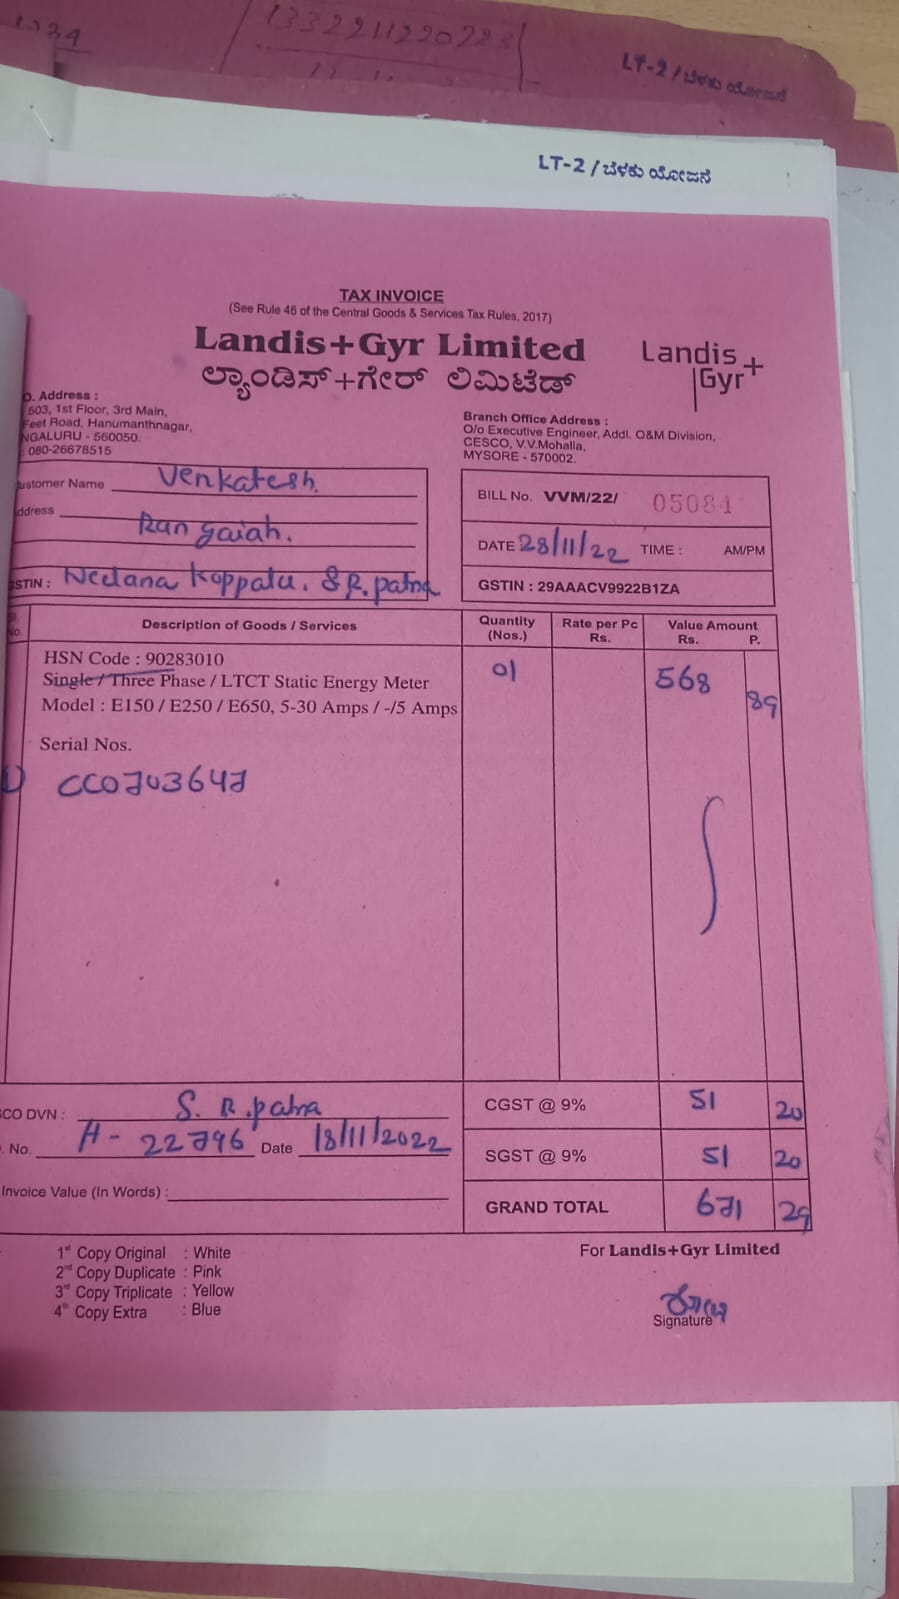 133221122022
LT-2 / ಬೆಳಕು ಯೋಜನೆ
LT-2 / ಬೆಳಕು ಯೋಜನೆ
TAX INVOICE
(See Rule 46 of the Central Goods & Services Tax Rules, 2017)
Landis+Gyr Limited
ಲ್ಯಾಂಡಿಸ್+ಗೇರ್ ಲಿಮಿಟೆಡ್
Landis+
Gyr
O. Address :
503, 1st Floor, 3rd Main,
Feet Road, Hanumanthnagar,
NGALURU - 560050.
080-26678515
Branch Office Address :
O/o Executive Engineer, Addl. O&M Division,
CESCO, V.V.Mohalla,
MYSORE - 570002.
ustomer Name Venkatesh.
ddress Rangaiah.
GSTIN : Neelana Koppalu. S R. patna
BILL No. VVM/22/ 05084
DATE 28/11/22 TIME : AM/PM
GSTIN : 29AAACV9922B1ZA
No. Description of Goods / Services Quantity (Nos.) Rate per Pc Rs. Value Amount Rs. P.
HSN Code : 90283010 01 568 89
Single / Three Phase / LTCT Static Energy Meter
Model : E150 / E250 / E650, 5-30 Amps / -/5 Amps
Serial Nos.
1) CC0703647
SCO DVN : S. R. patna CGST @ 9% 51 20
. No. H - 22796 Date 18/11/2022 SGST @ 9% 51 20
Invoice Value (In Words) : GRAND TOTAL 671 29
1st Copy Original : White
2nd Copy Duplicate : Pink
3rd Copy Triplicate : Yellow
4th Copy Extra : Blue
For Landis+Gyr Limited
Signature